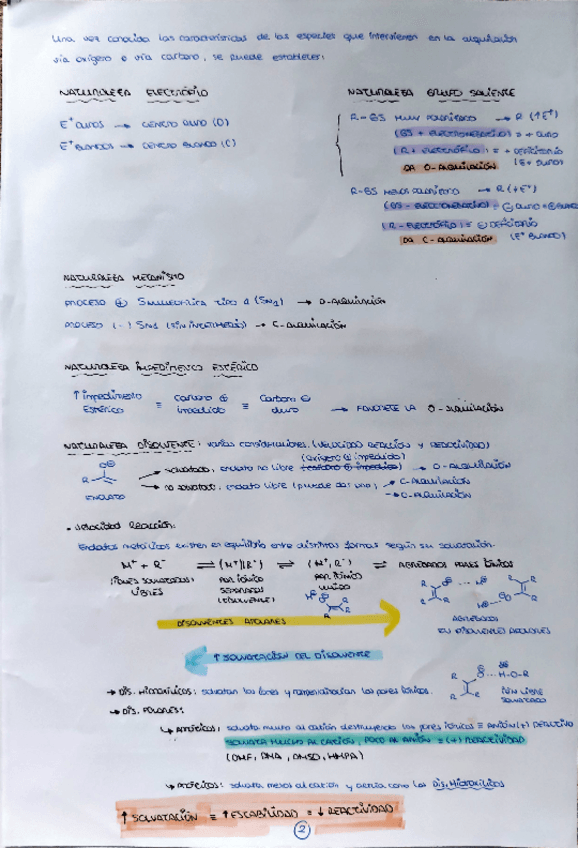 Una vez conocida las características de las especies que intervienen en la alquilación
vía oxígeno o vía carbono, se puede establecer:
NATURALEZA ELECTRÓFILO
E⁺ DUROS → CENTRO DURO (O)
E⁺ BLANDOS → CENTRO BLANDO (C)
NATURALEZA GRUPO SALIENTE
R-GS MUY POLARIZADO → R (↑E⁺)
(GS + ELECTRONEGATIVO) = + DURO
(R + ELECTRÓFILO) = + DEFICITARIO
(E+ DURO)
DA O-ALQUILACIÓN
R-GS MENOS POLARIZADO → R (↓E⁺)
(GS - ELECTRONEGATIVO) = ⊖ DURO = ⊕ BLANDO
(R - ELECTRÓFILO) = ⊖ DEFICITARIO
DA C-ALQUILACIÓN (E⁺ BLANDO)
NATURALEZA MECANISMO
PROCESO ⊕ (SN1) → O-ALQUILACIÓN
PROCESO (-) SN1 (SIN INTERMEDIO) → C-ALQUILACIÓN
NATURALEZA IMPEDIMENTO ESTÉRICO
↑ impedimento
Estérico ≡ Carbono ⊕ impedido ≡ Carbono ⊖ duro → FAVORECE LA O-ALQUILACIÓN
NATURALEZA DISOLVENTE: varias consideraciones. (VELOCIDAD REACCIÓN Y REACTIVIDAD)
(oxígeno ⊕ impedido)
SOLVATADO, enolato no libre (carbono ⊕ impedido) → O-ALQUILACIÓN
R
ENOLATO
NO SOLVATADO, enolato libre (puede dar una) → C-ALQUILACIÓN
→ O-ALQUILACIÓN
• VELOCIDAD REACCIÓN:
Enolatos metálicos existen en equilibrio entre distintas formas según su solvatación.
M⁺ + R⁻ ⇌ (M⁺||R⁻) ⇌ (M⁺, R⁻) ⇌ AGREGADOS PARES IÓNICOS
(IONES SOLVATADOS)
LIBRES
PAR IÓNICO
SEPARADOS
(DISOLVENTE)
PAR IÓNICO
UNIDO
AGREGADOS
EN DISOLVENTES APOLARES
DISOLVENTES APOLARES
↑ SOLVATACIÓN DEL DISOLVENTE
→ DIS. HIDROXÍLICOS: solvatan los iones y los pares iónicos.
H-O-R
SOLVATADO
→ DIS. POLARES:
↳ APRÓTICOS: solvata mucho al catión destruyendo los pares iónicos ≡ ANIÓN (+) REACTIVO
SOLVATA MUCHO AL CATIÓN, POCO AL ANIÓN = (+) REACTIVIDAD
(DMF, DMA, DMSO, HMPA)
↳ PRÓTICOS: solvata menos al catión y actúa como los DIS. HIDROXÍLICOS
↑ SOLVATACIÓN ≡ ↑ ESTABILIDAD ≡ ↓ REACTIVIDAD
2